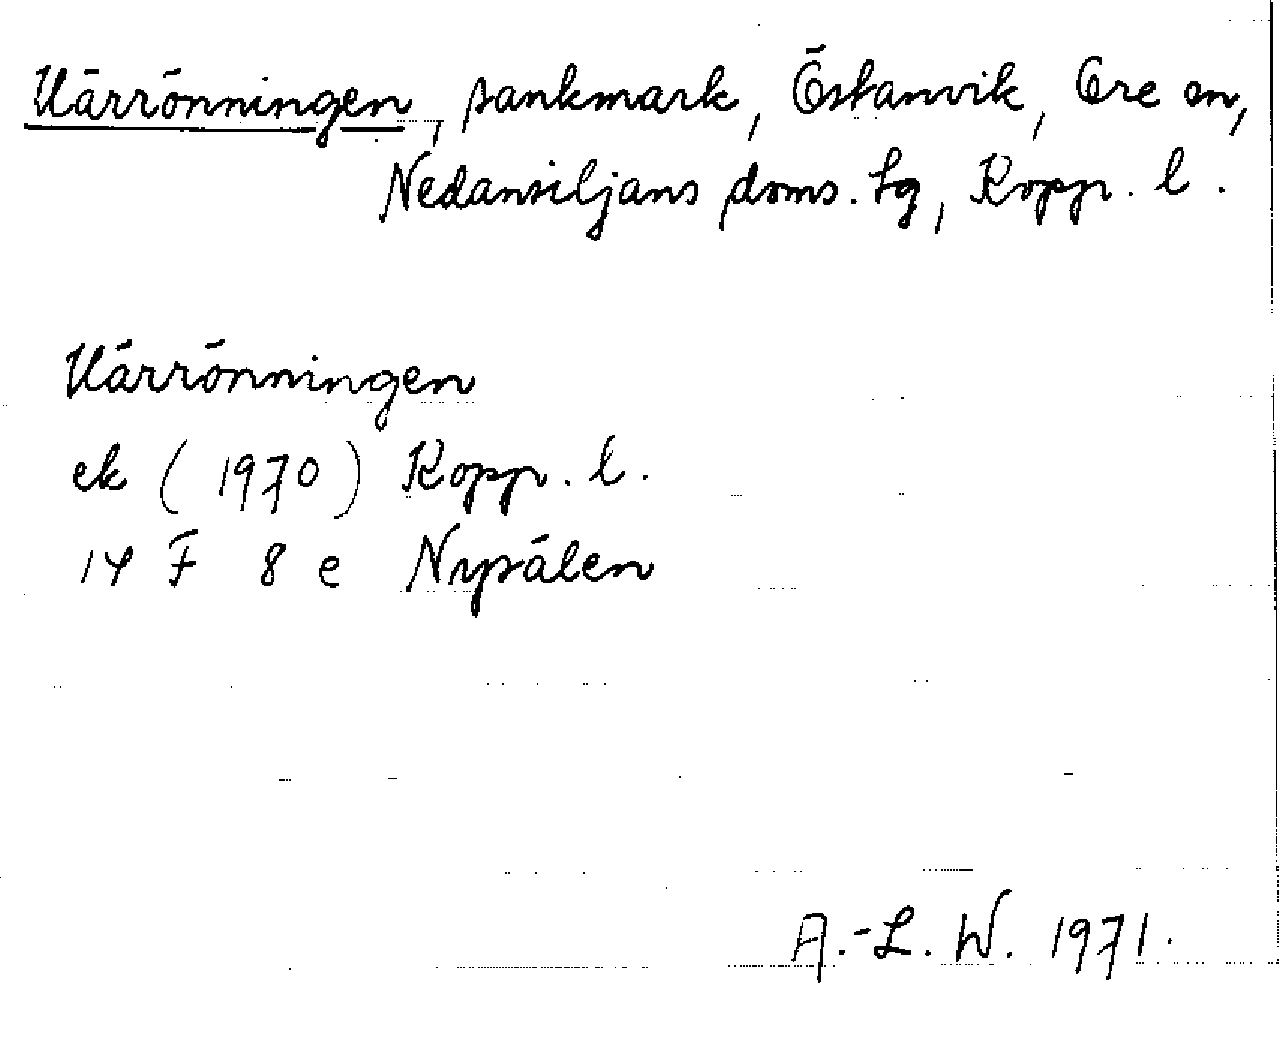 Kärrönningen, sankmark, Östanvik, Ore sn,
Nedansiljans doms. tg, Kopp. l.
Kärrönningen
ek (1970) Kopp. l.
14 F 8 e Nysålen
A.-L. W. 1971.